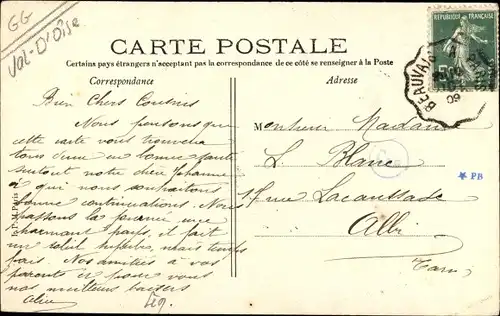 GG
Val-D'Oise
CARTE POSTALE
Certains pays étrangers n'acceptant pas la correspondance de ce côté se renseigner à la Poste
Correspondance
Adresse
RÉPUBLIQUE FRANÇAISE
BEAUVAI
Bien Chers Cousins
Nous pensons que
cette carte vous trouvera
tous en bonne santé
surtout notre
à qui nous souhaitons
bonne continuation. Nous
passons la une
charmant pays, il fait
un soleil superbe, mais temps
frais. Nos amitiés à vos
parents et pour vous
nos meilleurs baisers
Monsieur Madame
L. Blanc
rue Lacaussade
Albi
Tarn
PB